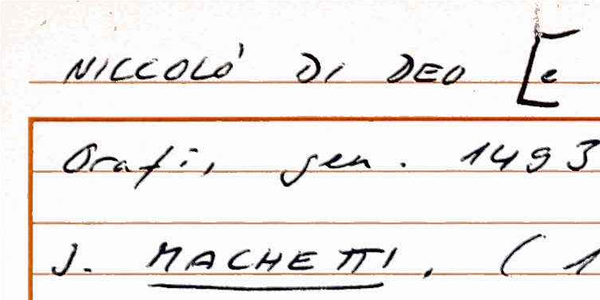 NICCOLÒ DI DEO [e
Orafi, gen. 1493
J. MACHETTI, (1